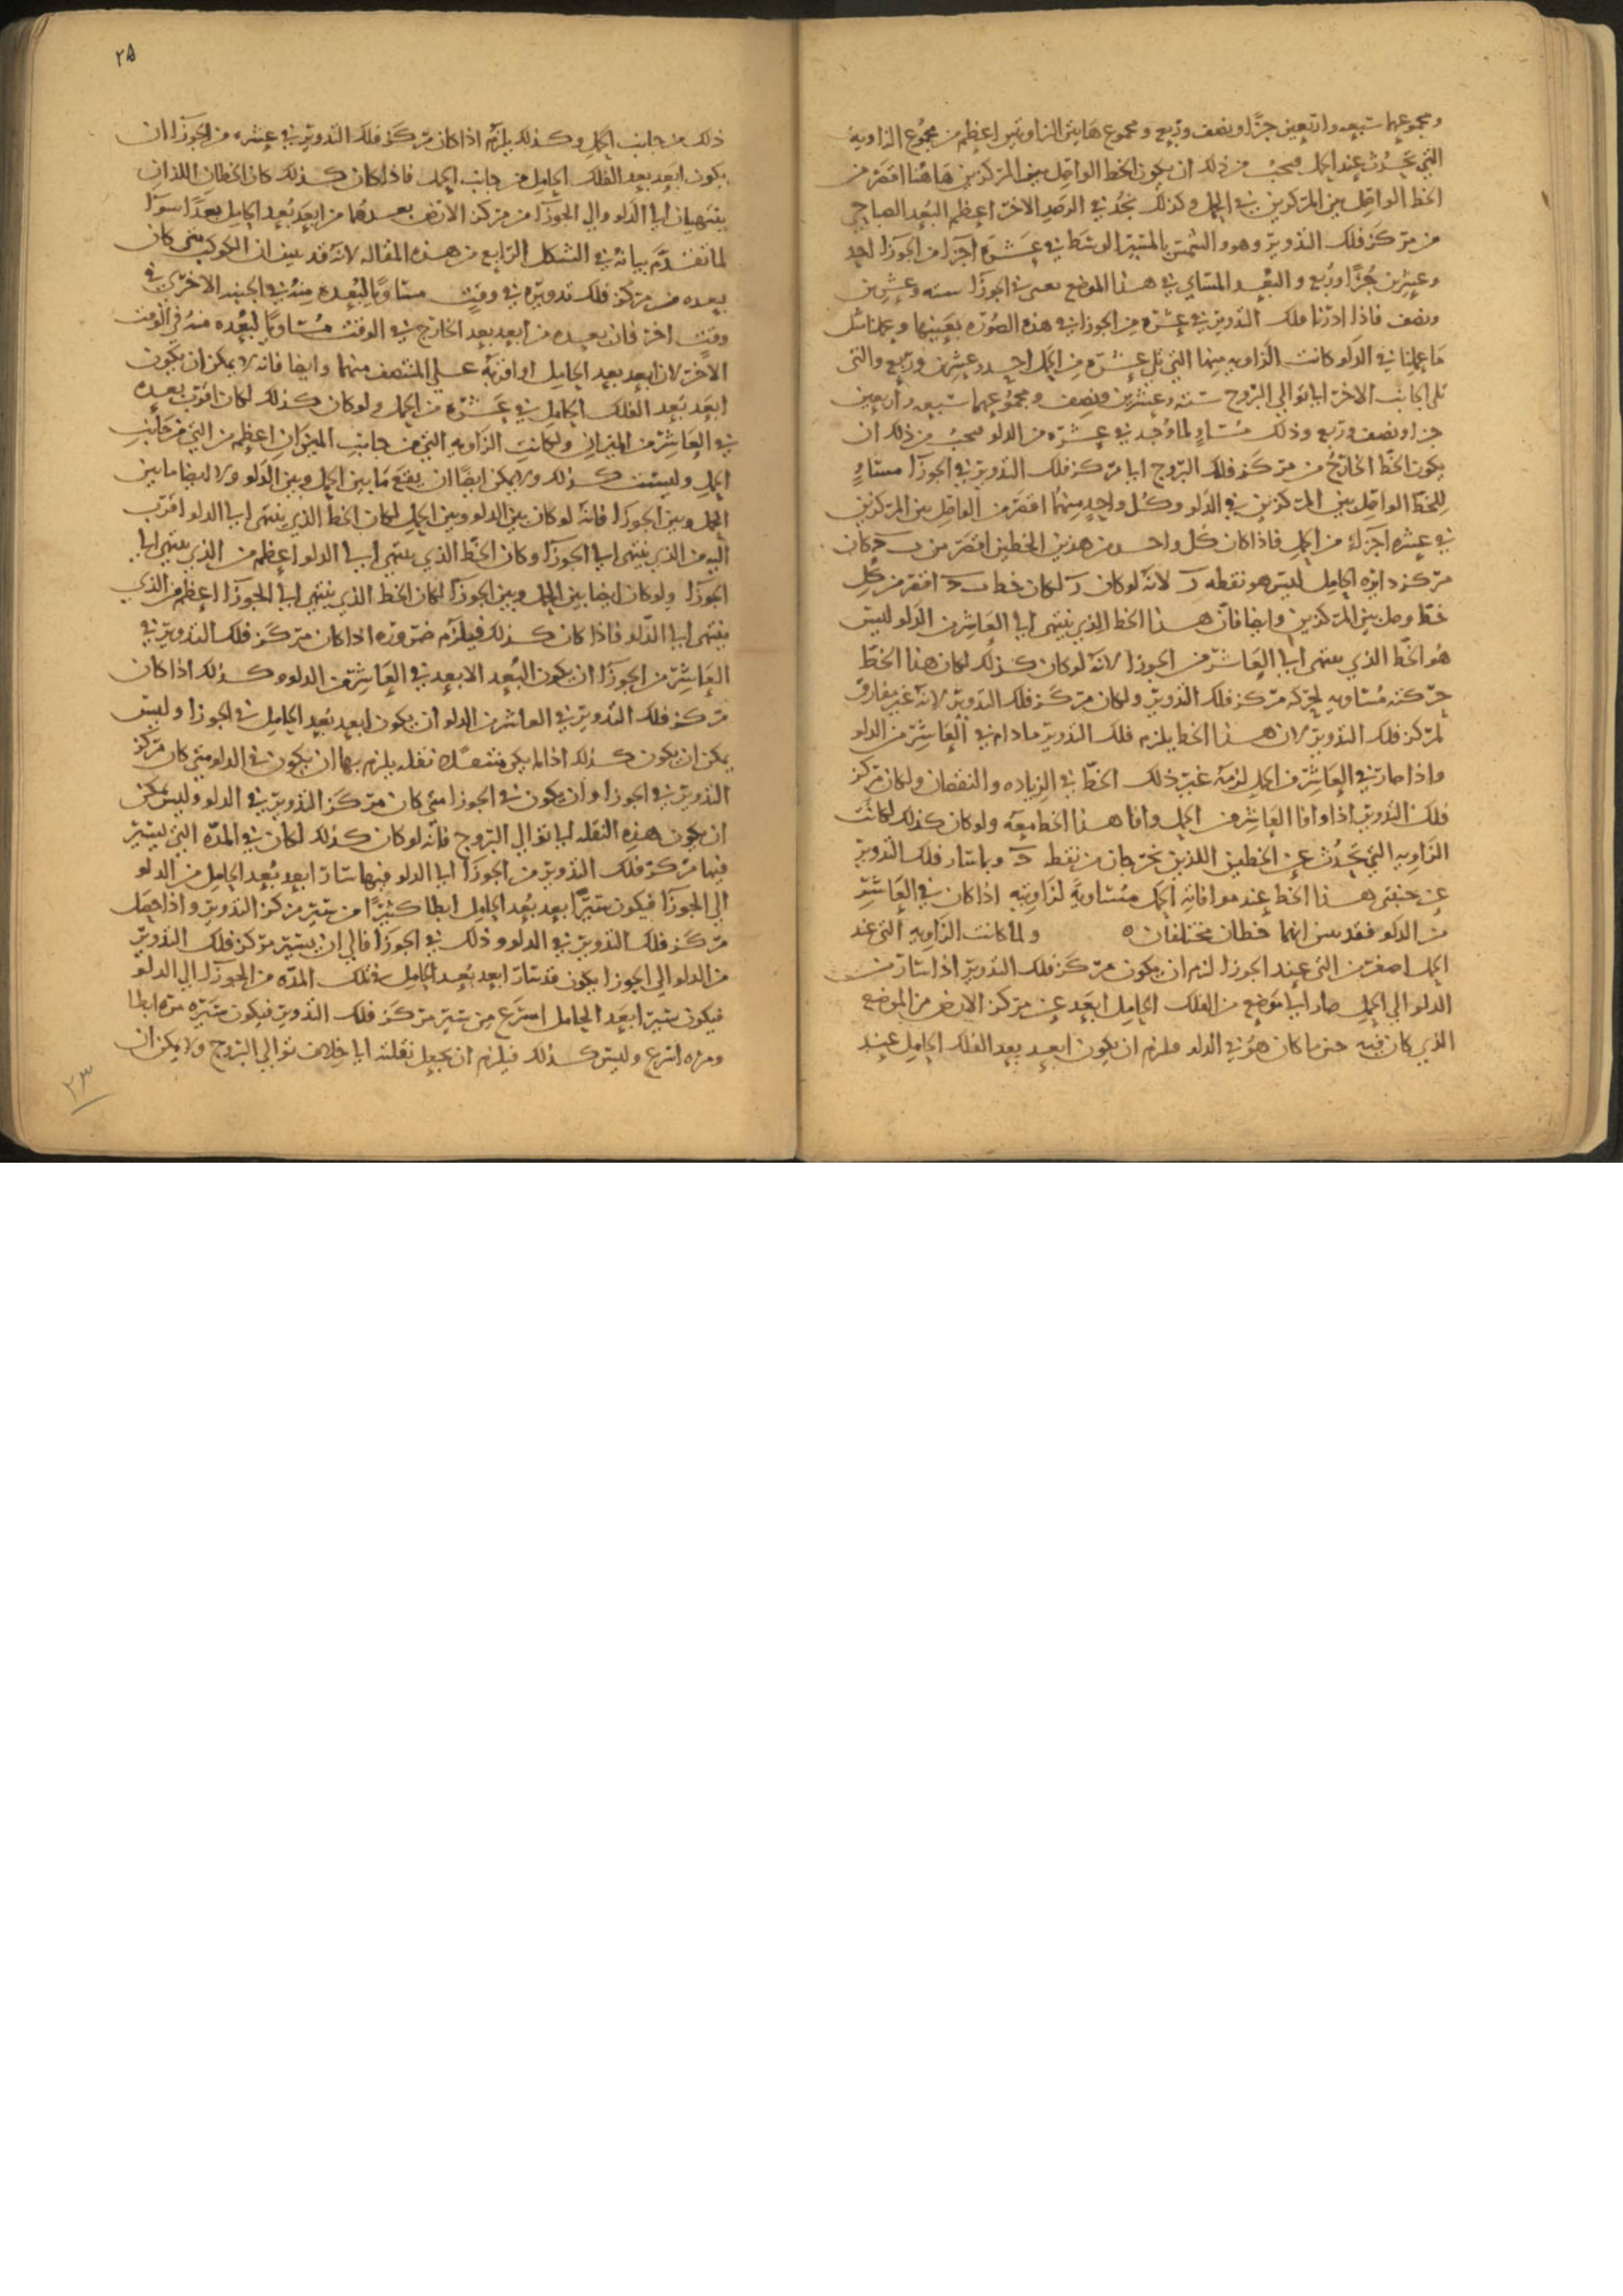 ومجموعهما سبعه واربعين جزًا ونصف وربع ومجموع هاتين الزاويتين اعظم من مجموع الزاويه
التي تحدث عند الحمل فيجب من ذلك ان يكون الخط الواصل بين المركزين هاهنا اقصر من
الخط الواصل بين المركزين في الحمل وكذلك نجد في الرصد الاخر اعظم البعد الصباحي
من مركز فلك التدوير وهو والشمس بالمسير الوسط في عشره اجزا من الجوزا احد
وعشرين جزًا وربع والبعد المسائي في هذا الموضع يعنى في الجوزا سته وعشرين
ونصف فاذا ادرنا فلك التدوير في عشره من الجوزا في هذه الصوره بعينها وعملنا مثل
ما عملنا في الدلو كانت الزاويه منهما التي تلي عشره من الحمل احد وعشرين وربع والتي
تلى الجانب الاخر الى توالي البروج سته وعشرين ونصف ومجموعهما سبعه واربعين
جزا ونصف وربع وذلك مساوٍ لما وجد في عشره من الدلو فيجب من ذلك ان
يكون الخط الخارج من مركز فلك البروج الى مركز فلك التدوير في الجوزا مساوٍ
للخط الواصل بين المركزين في الدلو وكل واحد منهما اقصر من الواصل بين المركزين
في عشره اجزاء من الحمل فاذا كان كل واحد من هذين الخطين اقصر من ب كان
مركز دايره الحامل ليس هو نقطه ر لانه لو كان ر لكان خط ب اقصر من كل
خط وصل بين المركزين وايضا فان هذا الخط الذي ينتهى الى العاشر من الدلو ليس
هو الخط الذي ينتهى الى العاشر من الجوزا لانه لو كان كذلك لكان هذا الخط
حركته مساويه لحركه مركز فلك التدوير ولكان مركز فلك التدوير لانه غير مفارق
لمركز فلك التدوير لان هذا الخط يلزم فلك التدوير ما دام في العاشر من الدلو
واذا صار في العاشر من الحمل لزمه غير ذلك الخط في الزياده والنقصان ولكان مركز
فلك التدوير اذا وافا العاشر من الحمل وافا هذا الخط معه ولو كان كذلك لكانت
الزاويه التي تحدث عن الخطين اللذين يخرجان من نقطه وبماسان فلك التدوير
عن جنبتى هذا الخط عند موافاته الحمل مساوية لزاويته اذا كان في العاشر
من الدلو فقد تبين انهما خطان مختلفان ه ولما كانت الزاويه التى عند
الحمل اصغر من التى عند الجوزا لزم ان يكون مركز فلك التدوير اذا سار من
الدلو الى الحمل صار الى موضع من الفلك الحامل ابعد عن مركز الارض من الموضع
الذي كان فيه حين ما كان هو في الدلو فلزم ان يكون ابعد بعد الفلك الحامل عند
٢٥
ذلك من جانب الحمل وكذلك يلزم اذا كان مركز فلك التدوير في عشره من الجوزا ان
يكون ابعد بعد الفلك الحامل من جانب الحمل فاذا كان كذلك كان الخطان اللذان
ينتهيان الى الدلو والي الجوزا من مركز الارض بعدهما من ابعد بعد الحامل بعدًا سوآ
لما تقدم بيانه في الشكل الرابع من هذه المقاله لانه قد تبين ان الكوكب متى كان
بعده من مركز فلك تدويره في وقت مساويا لبعده منه في الجنبه الاخرى في
وقت اخر فان بعده من ابعد بعد الخارج في الوقت مساويا لبعده منه في الوقت
الاخر لان ابعد بعد الحامل او اقربه على المنتصف منهما وايضا فانه لا يمكن ان يكون
ابعد بعد الفلك الحامل في عشره من الحمل ولو كان كذلك لكان اقرب بعده
في العاشر من الميزان ولكانت الزاويه التي من جانب الميزان اعظم من التي من جانب
الحمل وليست كذلك ولا يمكن ايضًا ان يقع ما بين الحمل وبين الدلو ولا ايضا ما بين
الحمل وبين الجوزا فانه لو كان بين الدلو وبين الحمل لكان الخط الذي ينتهى الى الدلو اقرب
اليه من الذي ينتهى الى الجوزا وكان الخط الذي ينتهي الى الدلو اعظم من الذي ينتهى الى
الجوزا ولو كان ايضا بين الحمل وبين الجوزا لكان الخط الذي ينتهى الى الجوزا اعظم من الذي
ينتهى الى الدلو فاذا كان كذلك فيلزم ضروره اذا كان مركز فلك التدوير في
العاشر من الجوزا ان يكون البعد الابعد في العاشر من الدلو وكذلك اذا كان
مركز فلك التدوير في العاشر من الدلو ان يكون ابعد بعد الحامل في الجوزا وليس
يمكن ان يكون كذلك اذا لم يكن نقله يلزم بها ان يكون في الدلو متى كان مركز
التدوير في الجوزا وان يكون في الجوزا متى كان مركز التدوير في الدلو وليس يمكن
ان يكون هذه النقله الى توالي البروج فانه لو كان كذلك لكان في المدّه التي يسير
فيها مركز فلك التدوير من الجوزا الى الدلو فيها سار ابعد بعد الحامل من الدلو
الى الجوزا فيكون سير ابعد بعد الحامل ابطا كثيرًا من سير مركز التدوير واذا حصل
مركز فلك التدوير في الدلو وذلك في الجوزا فالى ان يسير مركز فلك التدوير
من الدلو الى الجوزا يكون قد سار ابعد بعد الحامل في تلك المدّه من الجوزا الى الدلو
فيكون سير ابعد الحامل اسرع من سير مركز فلك التدوير فيكون سيره مره ابطا
ومره اسرع وليس كذلك فيلزم ان يجعل نقلته الى خلاف توالي البروج ولا يمكن ان
٢٣